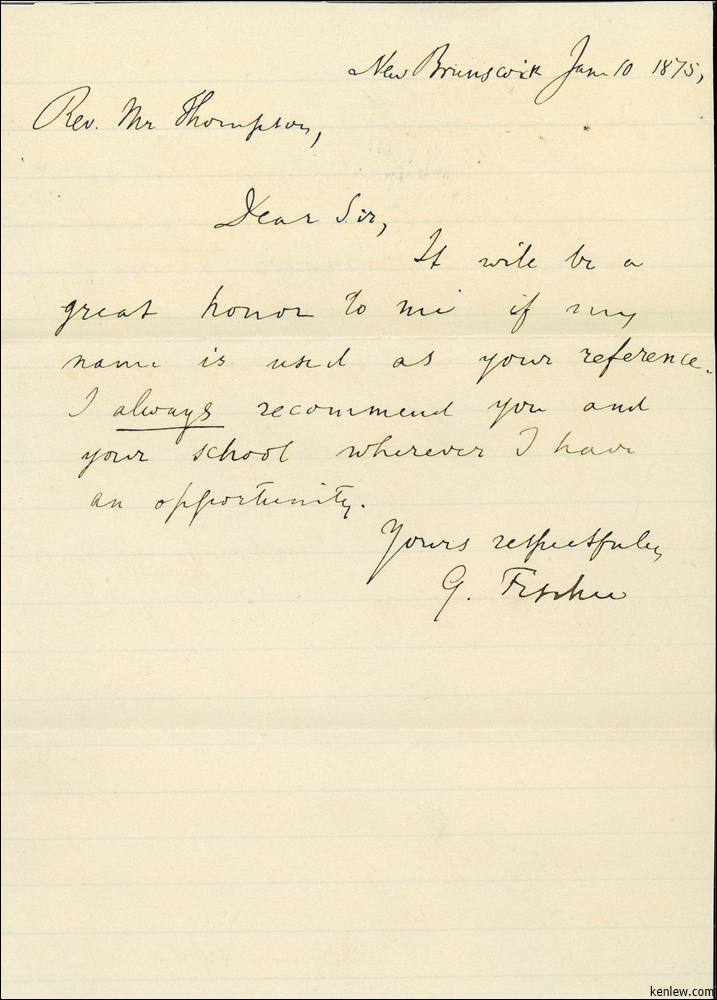 New Brunswick Jan 10 1875,
Rev. Mr Thompson,
Dear Sir,
It will be a
great honor to me if my
name is used as your reference.
I always recommend you and
your school wherever I have
an opportunity.
Yours respectfully
G. Fischer
kenlew.com